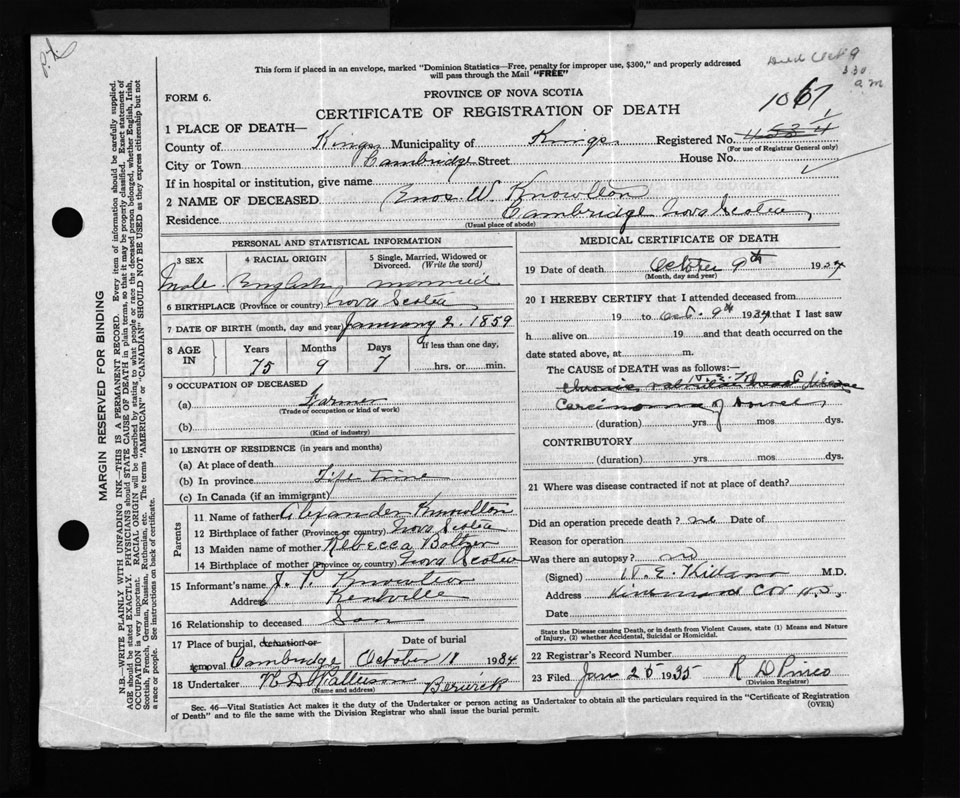 Died Oct 9
3 30 a m
This form if placed in an envelope, marked "Dominion Statistics—Free, penalty for improper use, $300," and properly addressed
will pass through the Mail "FREE"
PROVINCE OF NOVA SCOTIA
FORM 6.
CERTIFICATE OF REGISTRATION OF DEATH
1067
1 PLACE OF DEATH—
County of Kings Municipality of Kings Registered No.
(For use of Registrar General only)
City or Town Cambridge Street House No.
If in hospital or institution, give name
2 NAME OF DECEASED Enos W. Knowlton
Residence Cambridge Nova Scotia
(Usual place of abode)
PERSONAL AND STATISTICAL INFORMATION
3 SEX 4 RACIAL ORIGIN 5 Single, Married, Widowed or Divorced. (Write the word)
Male English married
6 BIRTHPLACE (Province or country) Nova Scotia
7 DATE OF BIRTH (month, day and year) January 2. 1859
8 AGE IN Years Months Days If less than one day,
75 9 7 hrs. or min.
9 OCCUPATION OF DECEASED
(a) Farmer
(Trade or occupation or kind of work)
(b)
(Kind of industry)
10 LENGTH OF RESIDENCE (in years and months)
(a) At place of death
(b) In province Life time
(c) In Canada (if an immigrant)
Parents
11 Name of father Alexander Knowlton
12 Birthplace of father (Province or country) Nova Scotia
13 Maiden name of mother Rebecca Boltzer
14 Birthplace of mother (Province or country) Nova Scotia
15 Informant's name J. P. Knowlton
Address Kentville
16 Relationship to deceased Son
17 Place of burial, cremation or removal Date of burial
Cambridge October 11 1934
18 Undertaker Berwick
(Name and address)
MEDICAL CERTIFICATE OF DEATH
19 Date of death October 9th 1934
(Month, day and year)
20 I HEREBY CERTIFY that I attended deceased from
19 to Oct. 9th 1934 that I last saw
h alive on 19 and that death occurred on the
date stated above, at m.
The CAUSE OF DEATH was as follows:
Chronic valvular heart disease
Carcinoma of bowel
(duration) yrs mos dys.
CONTRIBUTORY
(duration) yrs mos dys.
21 Where was disease contracted if not at place of death?
Did an operation precede death? no Date of
Reason for operation
Was there an autopsy? no
(Signed) M.D.
Address
Date
State the Disease causing Death, or in death from Violent Causes, state (1) Means and Nature
of Injury, (2) whether Accidental, Suicidal or Homicidal.
22 Registrar's Record Number
23 Filed Jan 25 1935 R D Pineo
(Division Registrar)
Sec. 46—Vital Statistics Act makes it the duty of the Undertaker or person acting as Undertaker to obtain all the particulars required in the "Certificate of Registration
of Death" and to file the same with the Division Registrar who shall issue the burial permit.
(OVER)
MARGIN RESERVED FOR BINDING
N.B.—WRITE PLAINLY WITH UNFADING INK—THIS IS A PERMANENT RECORD. Every item of information should be carefully supplied.
AGE should be stated EXACTLY. PHYSICIANS should STATE CAUSE OF DEATH in plain terms, so that it may be properly classified. Exact statement of
OCCUPATION is very important. RACIAL ORIGIN will be described by stating to what people or race the deceased person belonged, whether English, Irish,
Scottish, French, German, Russian, Ruthenian, etc. The terms "AMERICAN" or "CANADIAN" SHOULD NOT BE USED as they express citizenship but not
a race or people. See instructions on back of certificate.